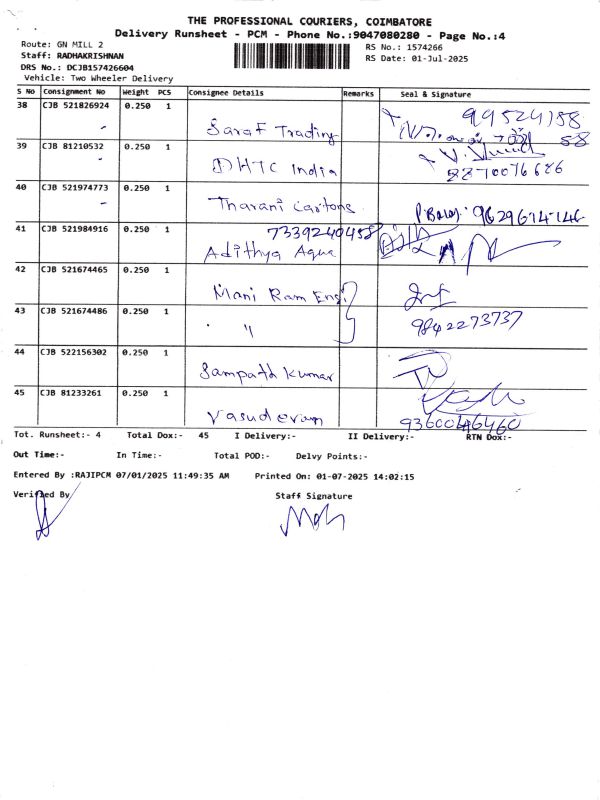 THE PROFESSIONAL COURIERS, COIMBATORE
Delivery Runsheet - PCM - Phone No.:9047080280 - Page No.:4
Route: GN MILL 2
RS No.: 1574266
Staff: RADHAKRISHNAN
RS Date: 01-Jul-2025
DRS No.: DCJB157426604
Vehicle: Two Wheeler Delivery
S No Consignment No Weight PCS Consignee Details Remarks Seal & Signature
38 CJB 521826924 0.250 1
Saraf Trading
39 CJB 81210532 0.250 1
DHTC India
8870076686
40 CJB 521974773 0.250 1
Tharani Cartons 9629614146
41 CJB 521984916 0.250 1 7339240458
Adithya Aqua
42 CJB 521674465 0.250 1
Mani Ram Eng.
43 CJB 521674486 0.250 1
" 9842273737
44 CJB 522156302 0.250 1
Sampath Kumar
45 CJB 81233261 0.250 1
Vasudevan
Tot. Runsheet:- 4 Total Dox:- 45 I Delivery:- II Delivery:- RTN Dox:-
Out Time:- In Time:- Total POD:- Delvy Points:-
Entered By :RAJIPCM 07/01/2025 11:49:35 AM Printed On: 01-07-2025 14:02:15
Verified By Staff Signature